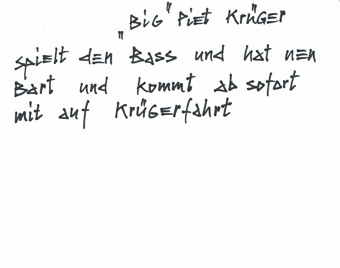 "BiG" Piet Krüger
spielt den "Bass und hat nen
Bart und kommt ab sofort
mit auf Krügerfahrt